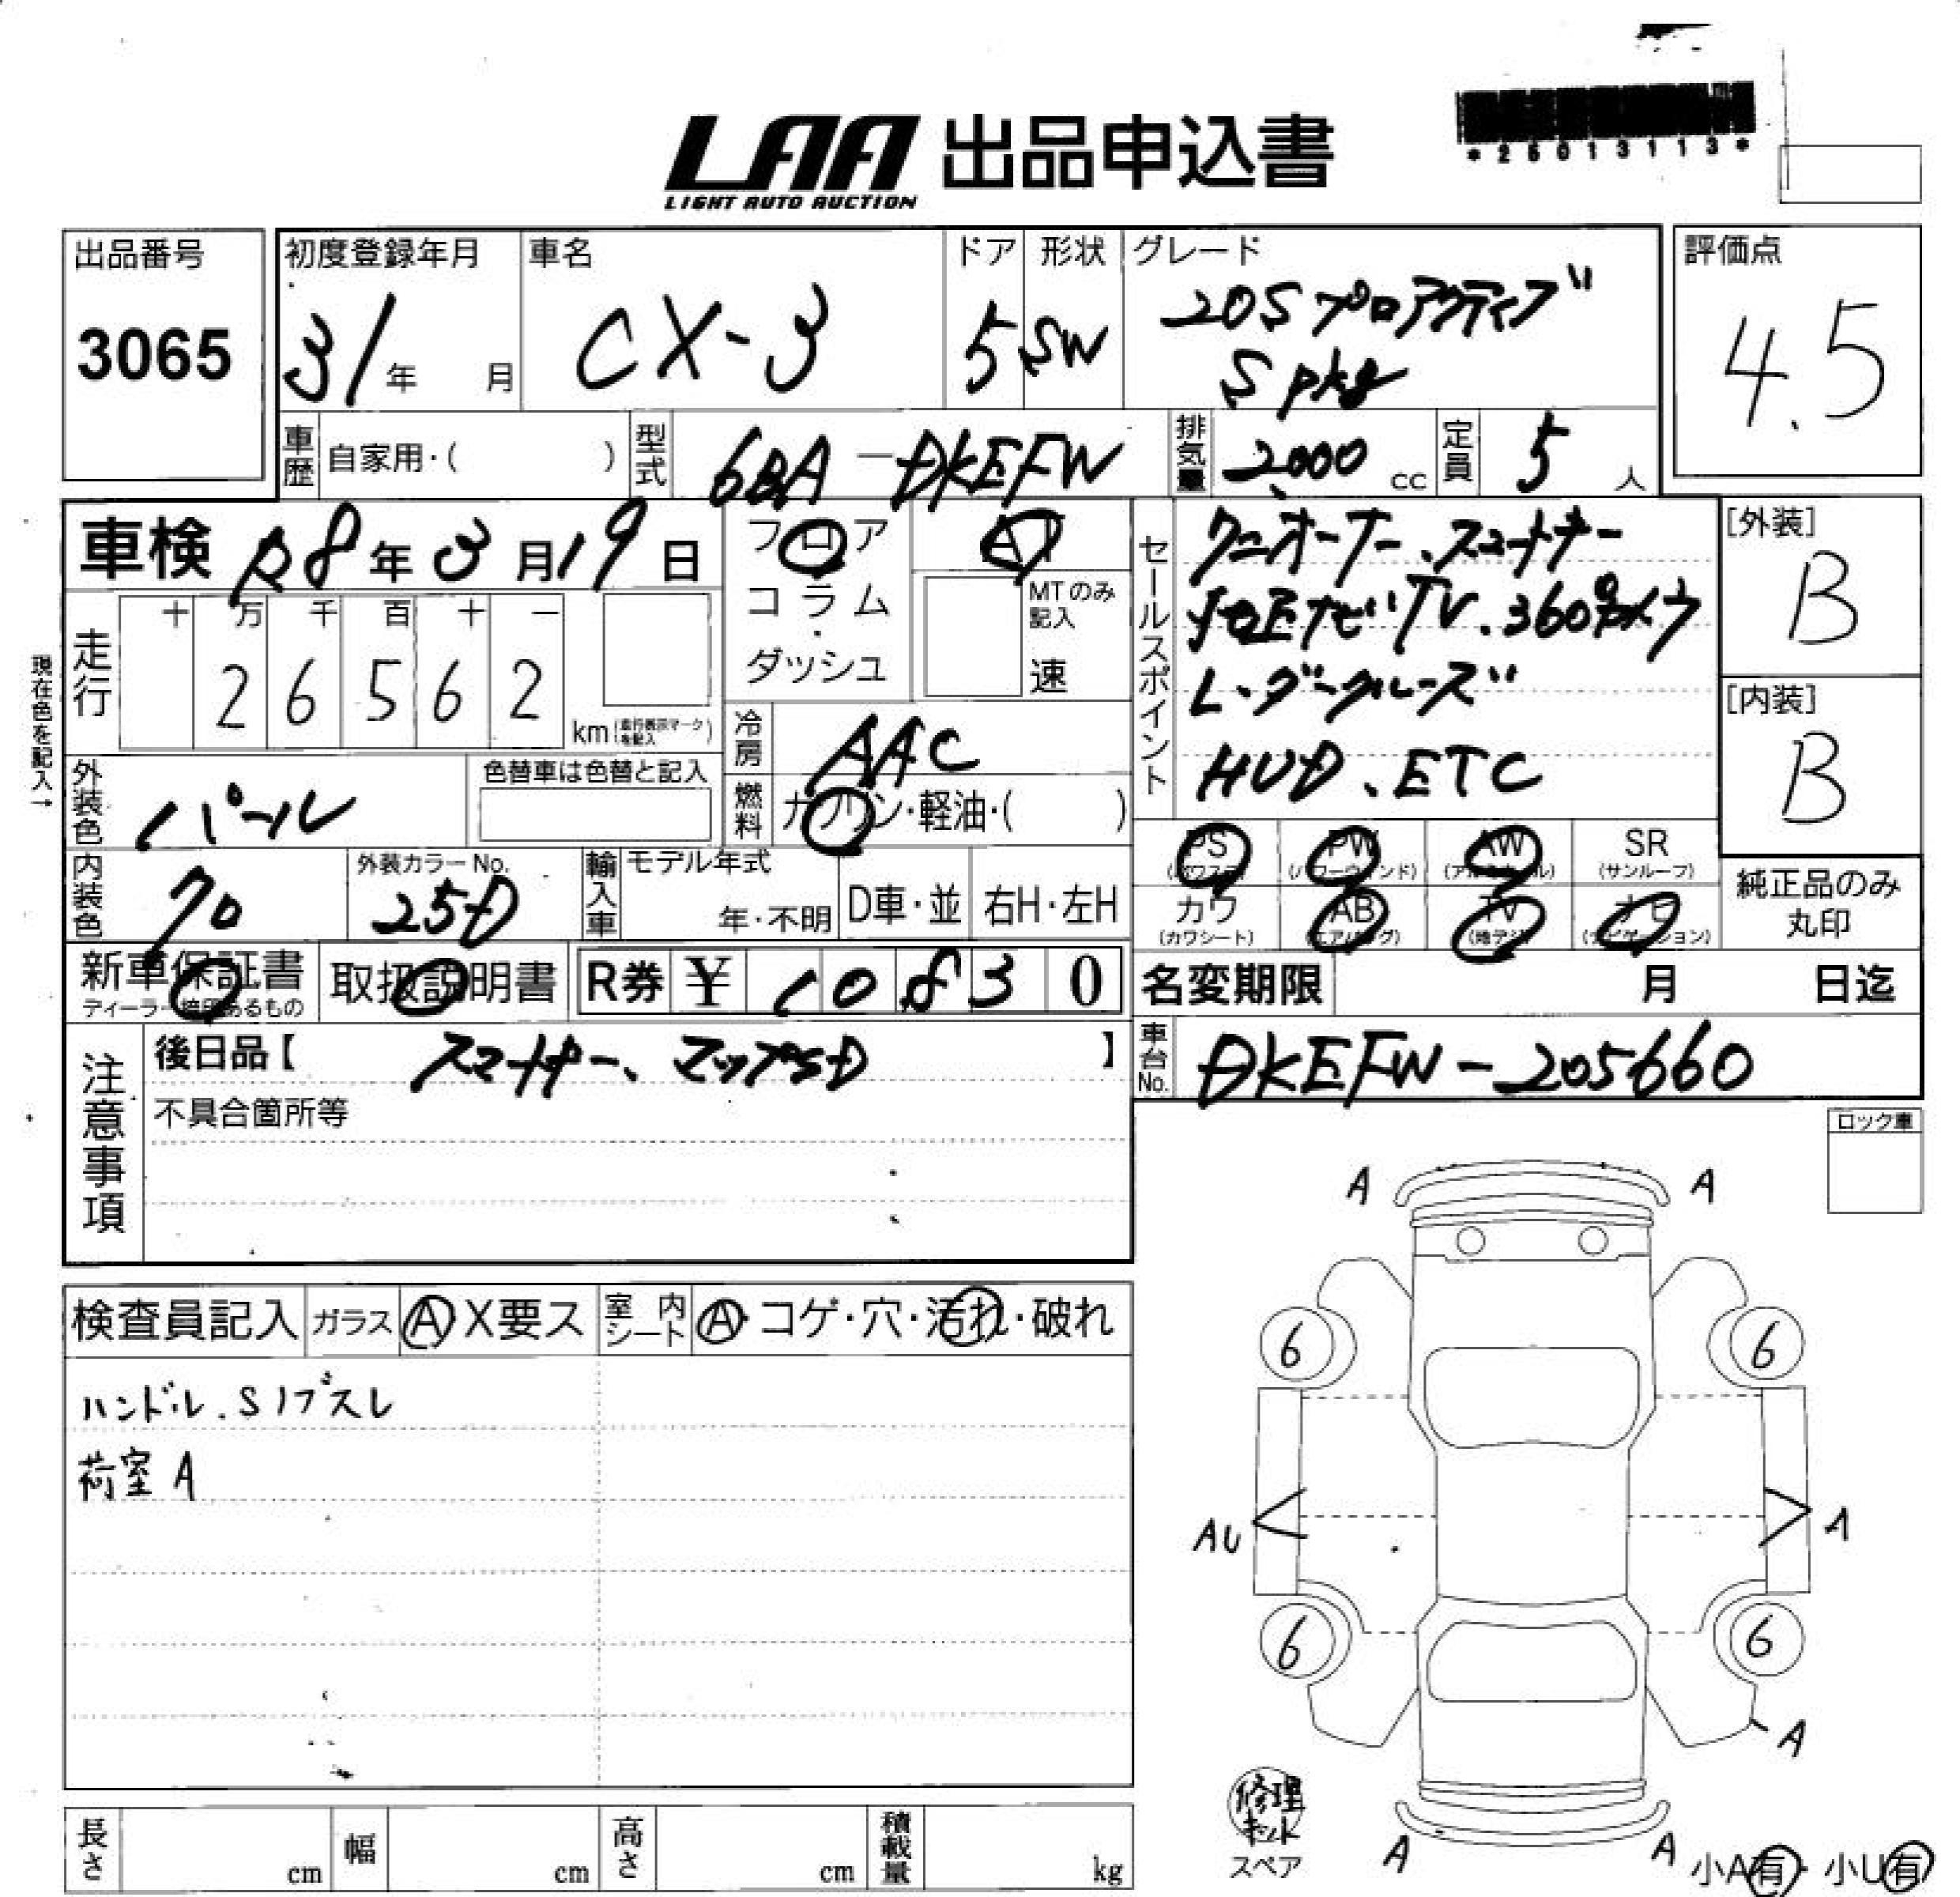 *26013113*
LAA 出品申込書
LIGHT AUTO AUCTION
出品番号
3065
初度登録年月
31年 月
車名
CX-3
ドア
5
形状
SW
グレード
20Sプロアクティブ
S pkg
評価点
4.5
車歴
自家用・( )
型式
6BA-DKEFW
排気量
2,000 cc
定員
5 人
車検 R8年3月19日
フロア
コラム
・
ダッシュ
AT
MTのみ
記入
速
セールスポイント
ワンオーナー、スマートキー
純正ナビTV.360°カメラ
レーダークルーズ
HUD、ETC
[外装]
B
[内装]
B
現在色を記入→
走行
十 万 千 百 十 一
2 6 5 6 2
km(走行表示マークを記入)
冷房
AAC
燃料
ガソリン・軽油・( )
外装色
パール
色替車は色替と記入
内装色
クロ
外装カラーNo.
25D
輸入車
モデル年式
年・不明
D車・並
右H・左H
PS
(パワステ)
PW
(パワーウィンド)
AW
(アルミホイル)
SR
(サンルーフ)
カワ
(カワシート)
AB
(エアバッグ)
TV
(地デジ)
ナビ
(ナビゲーション)
純正品のみ
丸印
新車保証書
ディーラー捺印あるもの
取扱説明書
R券 ¥ 1 0 8 3 0
名変期限 月 日迄
注意事項
後日品【 スマートキー、マップSD 】
不具合箇所等
車台No.
DKEFW-205660
ロック車
検査員記入
ガラス
A X要ス
室内シート
A・コゲ・穴・汚れ・破れ
ハンドル.Sノブスレ
荷室A
A A
6 6
AU A
6 6
A
A A
修理
キット
スペア
小A有・小U有
長さ cm
幅 cm
高さ cm
積載量 kg